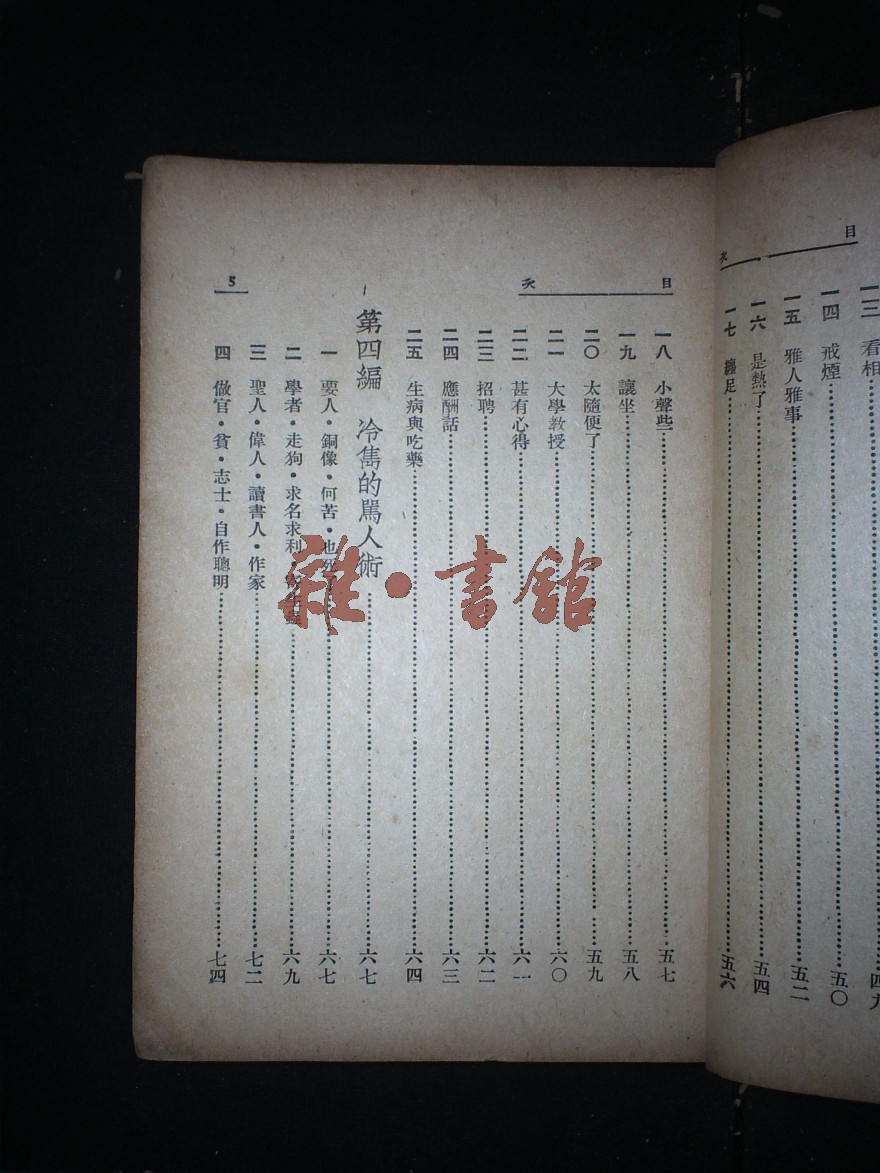 目 次
一三 看相……四九
一四 戒煙……五〇
一五 雅人雅事……五二
一六 是熱了……五四
一七 纏足……五六
目 次 5
一八 小聲些……五七
一九 讓坐……五八
二〇 太隨便了……五九
二一 大學教授……六〇
二二 甚有心得……六一
二三 招聘……六二
二四 應酬話……六三
二五 生病與吃藥……六四
第四編 冷雋的罵人術……六七
一 要人·銅像·何苦·也死……六七
二 學者·走狗·求名求利·寄生蟲……六九
三 聖人·偉人·讀書人·作家……七二
四 做官·貧·志士·自作聰明……七四
雜·書館